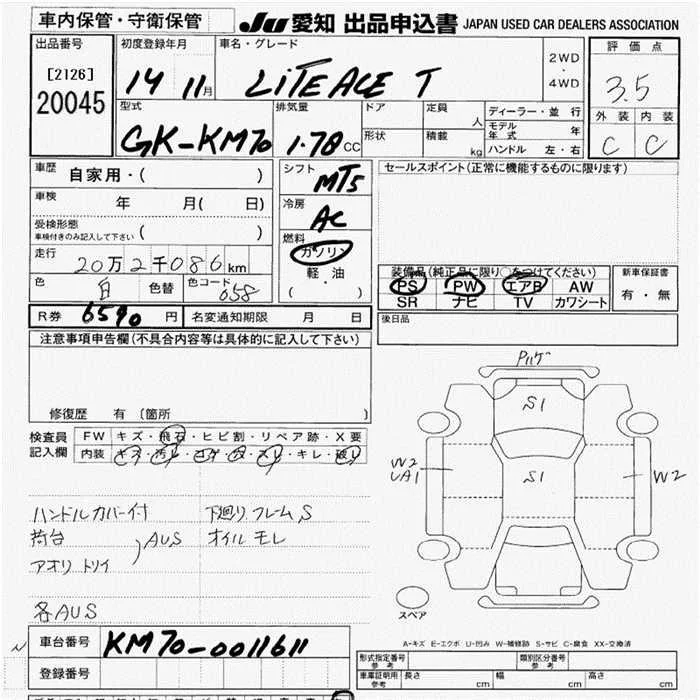 車内保管・守衛保管
JU 愛知 出品申込書 JAPAN USED CAR DEALERS ASSOCIATION
出品番号
[2126]
20045
初度登録年月
14 11月
車名・グレード
LiTE ACE T
2WD
・
4WD
評価点
3.5
外装 内装
C C
型式
GK-KM70
排気量
1.78 CC
ドア
形状
定員 人
積載 kg
ディーラー・並行
モデル年式 年
ハンドル 左・右
車歴 自家用・( )
車検 年 月( 日)
受検形態
車検付きのみ記入して下さい ( )
走行 20万2千086km
色 白 色替 色コード 058
シフト
MT5
冷房
AC
燃料
ガソリン
・
軽油
( )
セールスポイント(正常に機能するものに限ります)
装備品(純正品に限り○をつけてください)
PS PW エアB AW
SR ナビ TV カワシート
新車保証書
有・無
R券 6590 円 名変通知期限 月 日
後日品
注意事項申告欄(不具合内容等は具体的に記入して下さい)
修復歴 有 〔箇所 〕
検査員記入欄
FW キズ・飛石・ヒビ割・リペア跡・X要
内装 キズ・汚レ・コゲ・穴・スレ・キレ・破レ
ハンドルカバー付 下廻り.フレームS
荷台 AUS オイルモレ
アオリ トリイ
各AUS
S1
W2
UA1
S1
W2
スペア
A-キズ E-エクボ U-凹み W-補修跡 S-サビ C-腐食 XX-交換済
車台番号 KM70-0011611
登録番号
型式指定番号
参考
類別区分番号
参考
車庫証明用
参考
長さ cm 幅 cm 高さ cm